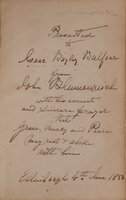 Presented
to
Isaac Bayley Balfour
from
John Blumenreich
with his earnest
and sincere prayer
that
Grace, Mercy and Peace
may rest & abide
with him
Edinburgh 4th June 1883